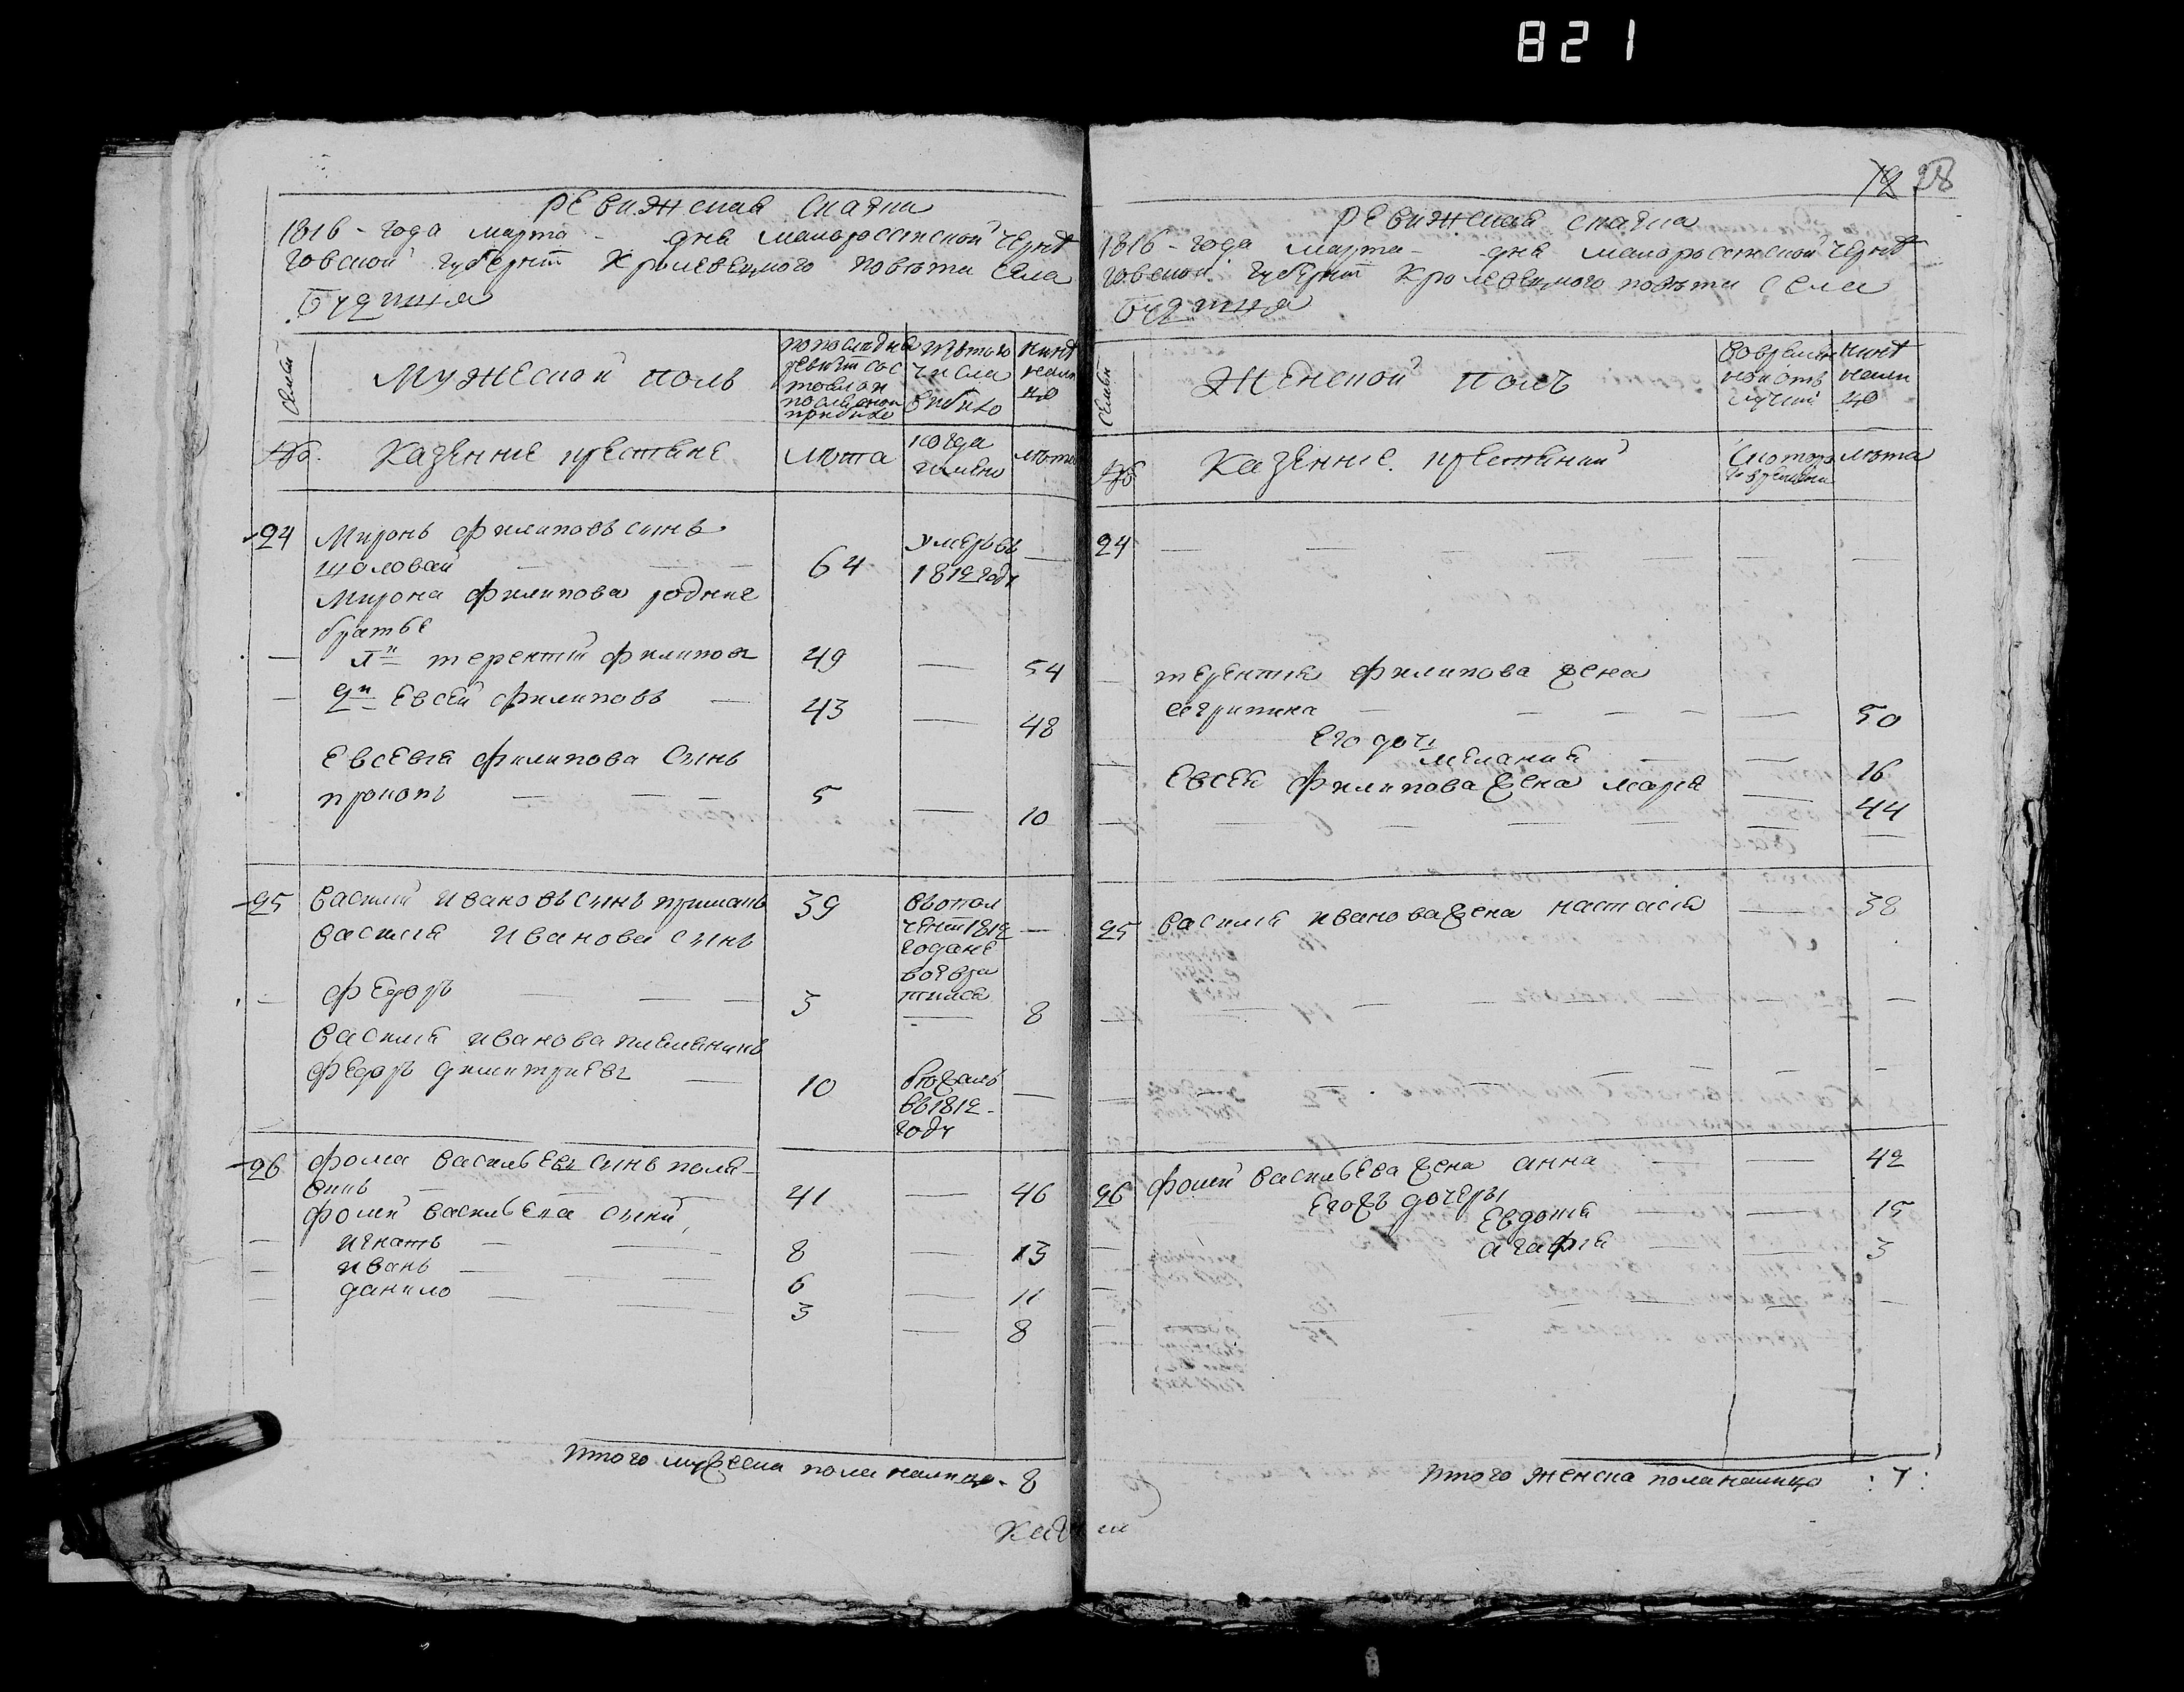 821
Ревижская скаска
1816 - года марта - дня малоросстской черні
говской губерніи Кролевецкого повѣта села
Будища
семьи
Мужеской полъ
по последней
ревизіи сос
тояло и
после оной
прибило
изтого
числа
выбило
нинѣ
налицо
№
Казенніе крестяне
лѣта
когда
имено
лѣта
24 Миронъ филиповъ синъ
шаловай 64 умеръ въ
1812 году
Мирона филипова родніе
братье
1й терентій филиповъ 49 54
2й Евсей филиповъ 43 48
Евсевія филипова синъ
прокопъ 5 10
25 василій Ивановъ синъ 39 въ опол
ченіи 1812
года не
возвра
тился
василія Иванова синъ
федоръ 3 8
василія иванова племяникъ
федоръ димитріевъ 10 бежалъ
въ 1812
году
26 фома васильевъ синъ поля-
викъ 41 46
фоми васильева сини,
игнатъ 8 13
иванъ 6 11
данило 3 8
Итого мужеска пола налицо - 8
28
Ревижская скаска
1816 - года марта - дня малоросстской черні
говской губерніи Кролевецкого повѣта села
Будища
семьи
Женской полъ
во времен
ной отъ
лучки
нинѣ
налицо
№
Казенніе крестянки
с которо
го времени
лѣта
24
терентія филипова жена
агрипина 50
Его дочъ
меланія 16
Евсея филипова жена марія 44
25 василія иванова жена настасія 38
26 фоми васильева жена анна 42
Егожъ дочеры
Евдокія 15
агафія 3
Итого женска пола налицо : 7 :